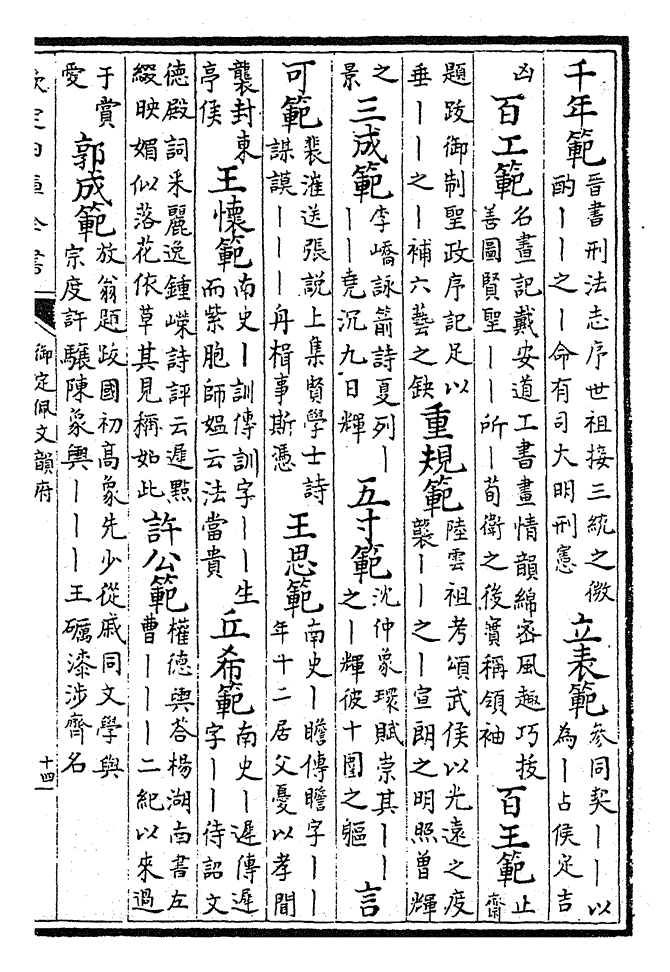 千年範 晉書刑法志序世祖接三統之微
酌丨丨之丨命有司大明刑憲
立表範 參同契丨丨以
為丨占候定吉
凶
百工範 名畫記戴安道工書畫情韻綿密風趣巧拔
善圖賢聖丨丨所丨荀衛之後實稱領袖
百王範 止
齋
題跋御制聖政序記足以
垂丨丨之丨補六藝之缺
重規範 陸雲祖考頌武侯以光遠之度
襲丨丨之丨宣朗之明照曾輝
之
景
三成範 李嶠詠箭詩夏列丨
丨丨堯沉九日輝
五寸範 沈仲象環賦崇其丨丨
之丨輝彼十圍之軀
言
可範 裴漼送張說上集賢學士詩
謀謨丨丨丨舟楫事斯憑
王思範 南史丨瞻傳瞻字丨丨
年十二居父憂以孝聞
襲封東
亭侯
王懷範 南史丨訓傳訓字丨丨生
而紫胞師媪云法當貴
丘希範 南史丨遲傳遲
字丨丨待詔文
德殿詞采麗逸鍾嶸詩評云遲點
綴映媚似落花依草其見稱如此
許公範 權德輿荅楊湖南書左
曹丨丨丨二紀以來過
于賞
愛
郭成範 放翁題跋國初高象先少從戚同文學與
宗度許驤陳象輿丨丨丨王礪漆涉齊名
欽定四庫全書
御定佩文韻府
十四